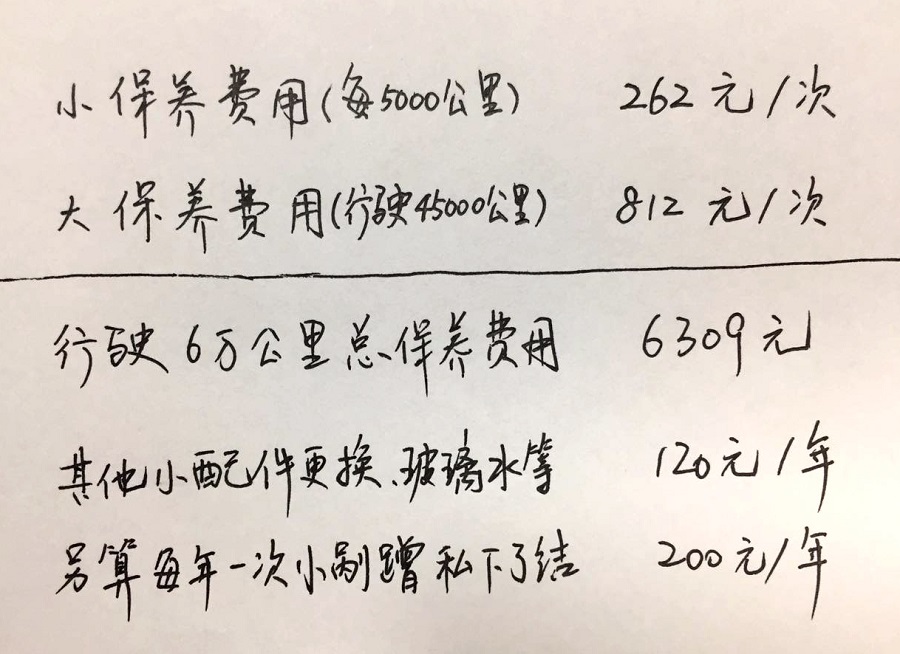 小保养费用(每5000公里) 262元/次
大保养费用(行驶45000公里) 812元/次
行驶6万公里总保养费用 6309元
其他小配件更换、玻璃水等 120元/年
另算每年一次小剐蹭私下了结 200元/年